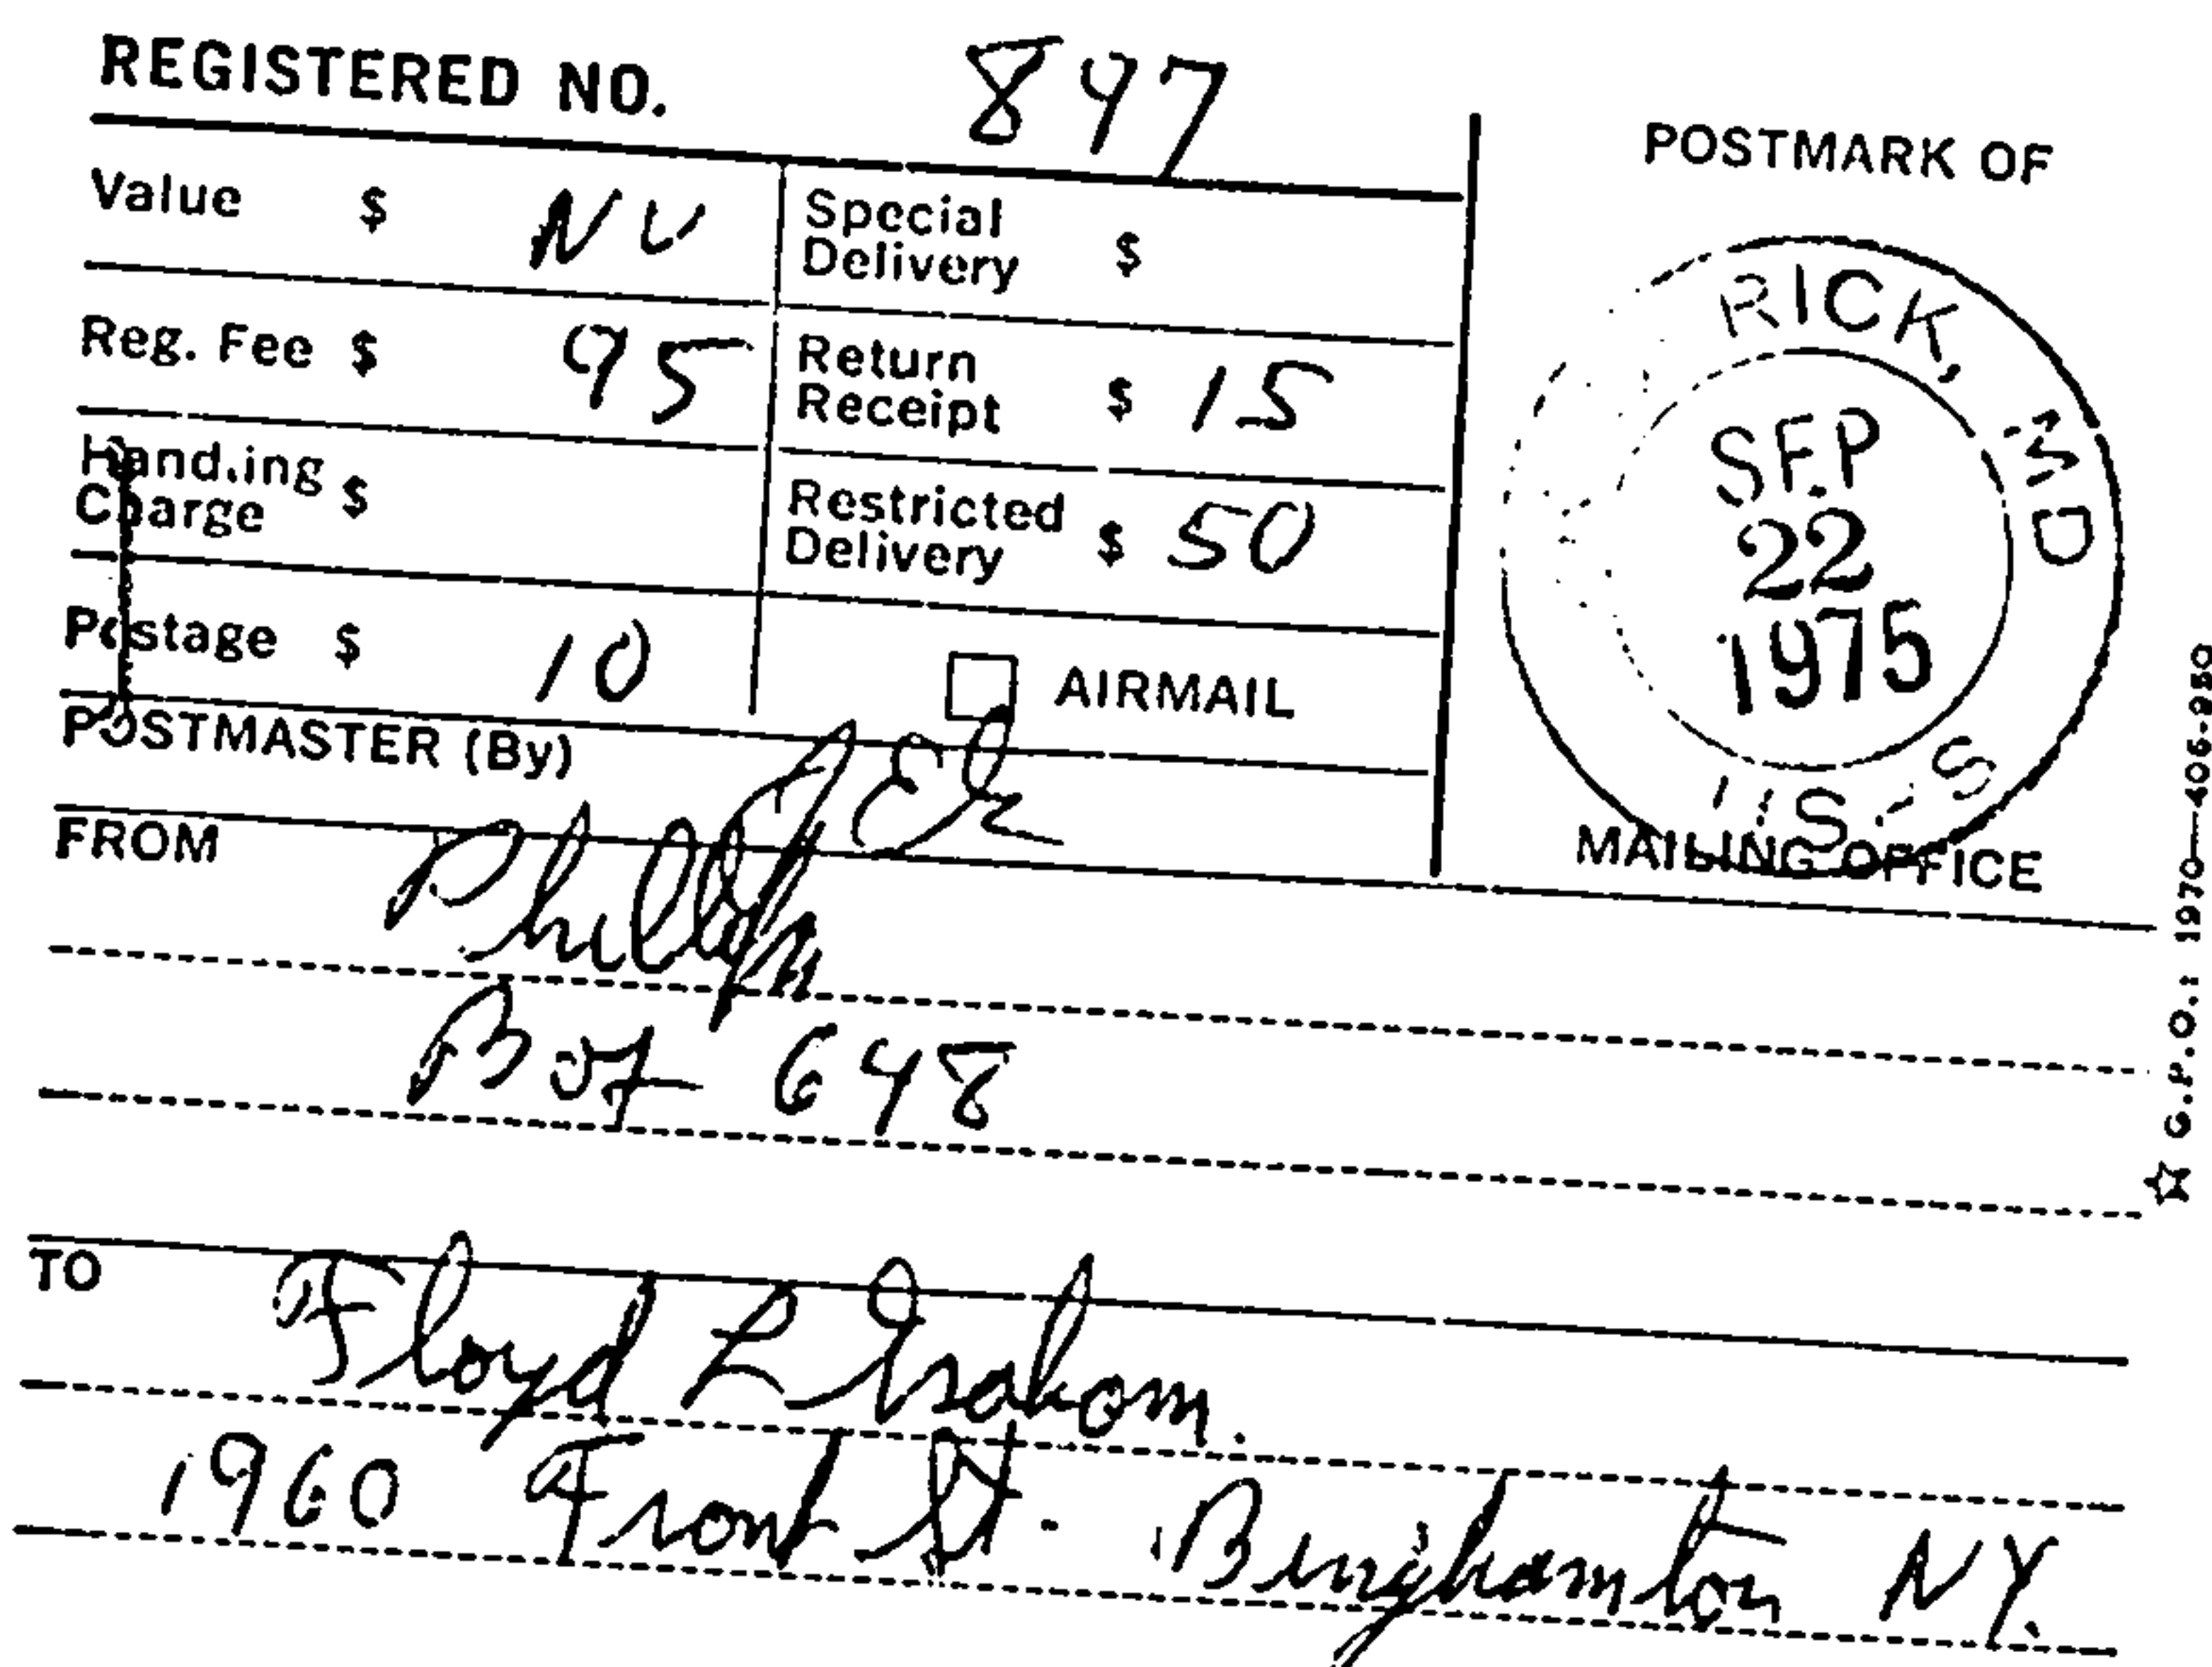 REGISTERED NO. 847
POSTMARK OF
Value $ NV
Special Delivery $
Reg. Fee $ 95
Return Receipt $ 15
Handling Charge $
Restricted Delivery $ 50
Postage $ 10
AIRMAIL
POSTMASTER (By)
RICK, MD
SEP
22
1975
MAILING OFFICE
FROM Phillips
Box 648
TO Floyd
1960 Front St. Binghamton NY.
☆ G.P.O.: 1970—406-950